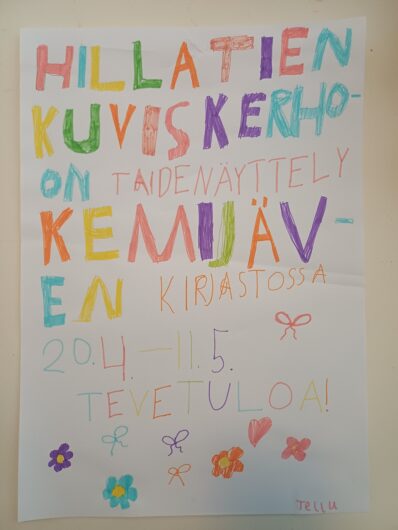 HILLATIEN
KUVISKERHO-
ON TAIDENÄYTTELY
KEMIJÄV-
EN KIRJASTOSSA
20.4.—11.5.
TEVETULOA!
Tellu